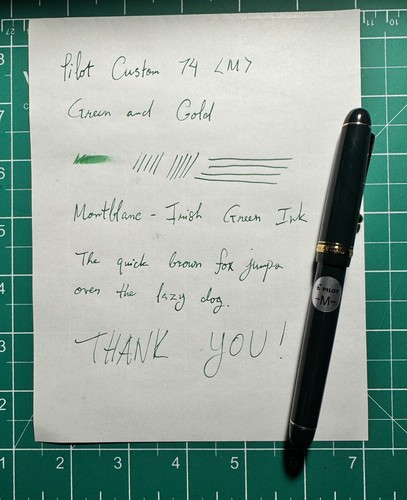 Pilot Custom 74 <M>
Green and Gold
Montblanc - Irish Green Ink
The quick brown fox jumps
over the lazy dog.
THANK YOU!
PILOT
-M-
1 2 3 4 5 6 7